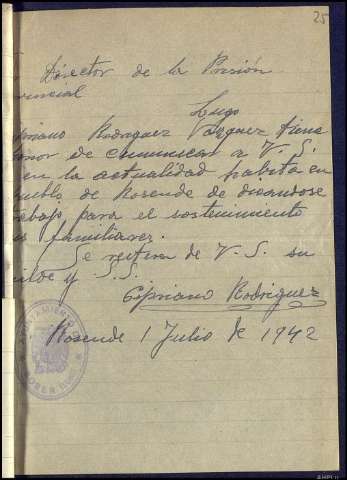 25
Director de la Prisión
vincial
Lugo
priano Rodriguez Vazquez tiene
onor de comunicar a V. S.
en la actualidad habita en
ueblo de Rosende de dicandose
rabajo para el sostenimiento
us familiares.
Se reitera de V. S. su
ilde y S.S.
Cipriano Rodriguez
Rosende 1 Julio de 1942
AYUNTAMIENTO
SOBER
AHPL